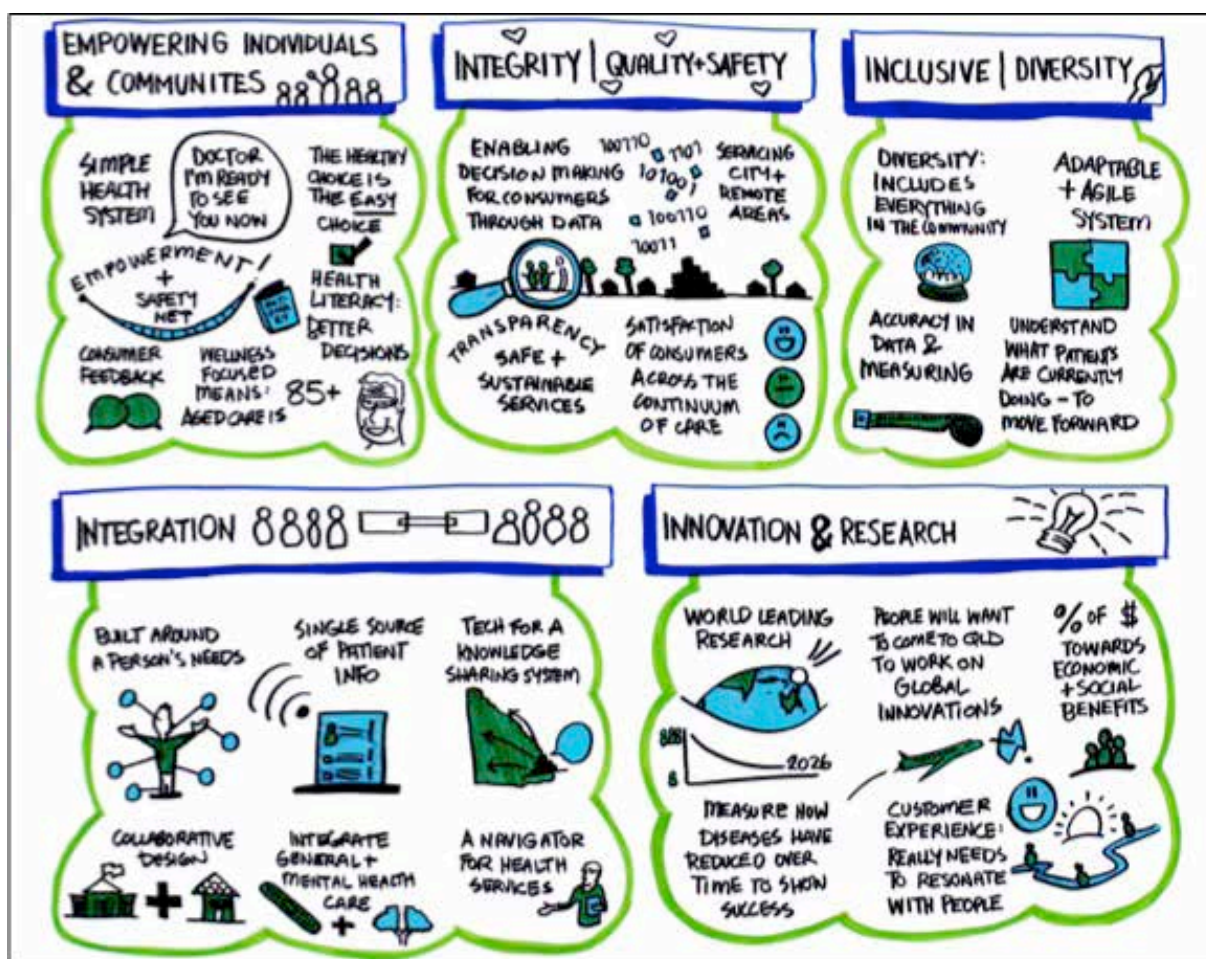 EMPOWERING INDIVIDUALS
& COMMUNITES
SIMPLE
HEALTH
SYSTEM
DOCTOR
I'M READY
TO SEE
YOU NOW
THE HEALTHY
CHOICE IS
THE EASY
CHOICE
EMPOWERMENT!
+
SAFETY
NET
HEALTH
LITERACY:
BETTER
DECISIONS
CONSUMER
FEEDBACK
WELLNESS
FOCUSED
MEANS:
AGED CARE IS
85+
INTEGRITY | QUALITY+SAFETY
ENABLING
DECISION MAKING
FOR CONSUMERS
THROUGH DATA
100110
1101
101001
100110
10011
SERVICING
CITY+
REMOTE
AREAS
TRANSPARENCY
SAFE +
SUSTAINABLE
SERVICES
SATISFACTION
OF CONSUMERS
ACROSS THE
CONTINUUM
OF CARE
INCLUSIVE | DIVERSITY
DIVERSITY:
INCLUDES
EVERYTHING
IN THE COMMUNITY
ADAPTABLE
+ AGILE
SYSTEM
ACCURACY IN
DATA &
MEASURING
UNDERSTAND
WHAT PATIENTS
ARE CURRENTLY
DOING - TO
MOVE FORWARD
INTEGRATION
BUILT AROUND
A PERSON'S NEEDS
SINGLE SOURCE
OF PATIENT
INFO
TECH FOR A
KNOWLEDGE
SHARING SYSTEM
COLLABORATIVE
DESIGN
+
INTEGRATE
GENERAL +
MENTAL HEALTH
CARE
+
A NAVIGATOR
FOR HEALTH
SERVICES
INNOVATION & RESEARCH
WORLD LEADING
RESEARCH
$
2026
MEASURE HOW
DISEASES HAVE
REDUCED OVER
TIME TO SHOW
SUCCESS
PEOPLE WILL WANT
TO COME TO QLD
TO WORK ON
GLOBAL
INNOVATIONS
% OF $
TOWARDS
ECONOMIC
+ SOCIAL
BENEFITS
CUSTOMER
EXPERIENCE:
REALLY NEEDS
TO RESONATE
WITH PEOPLE